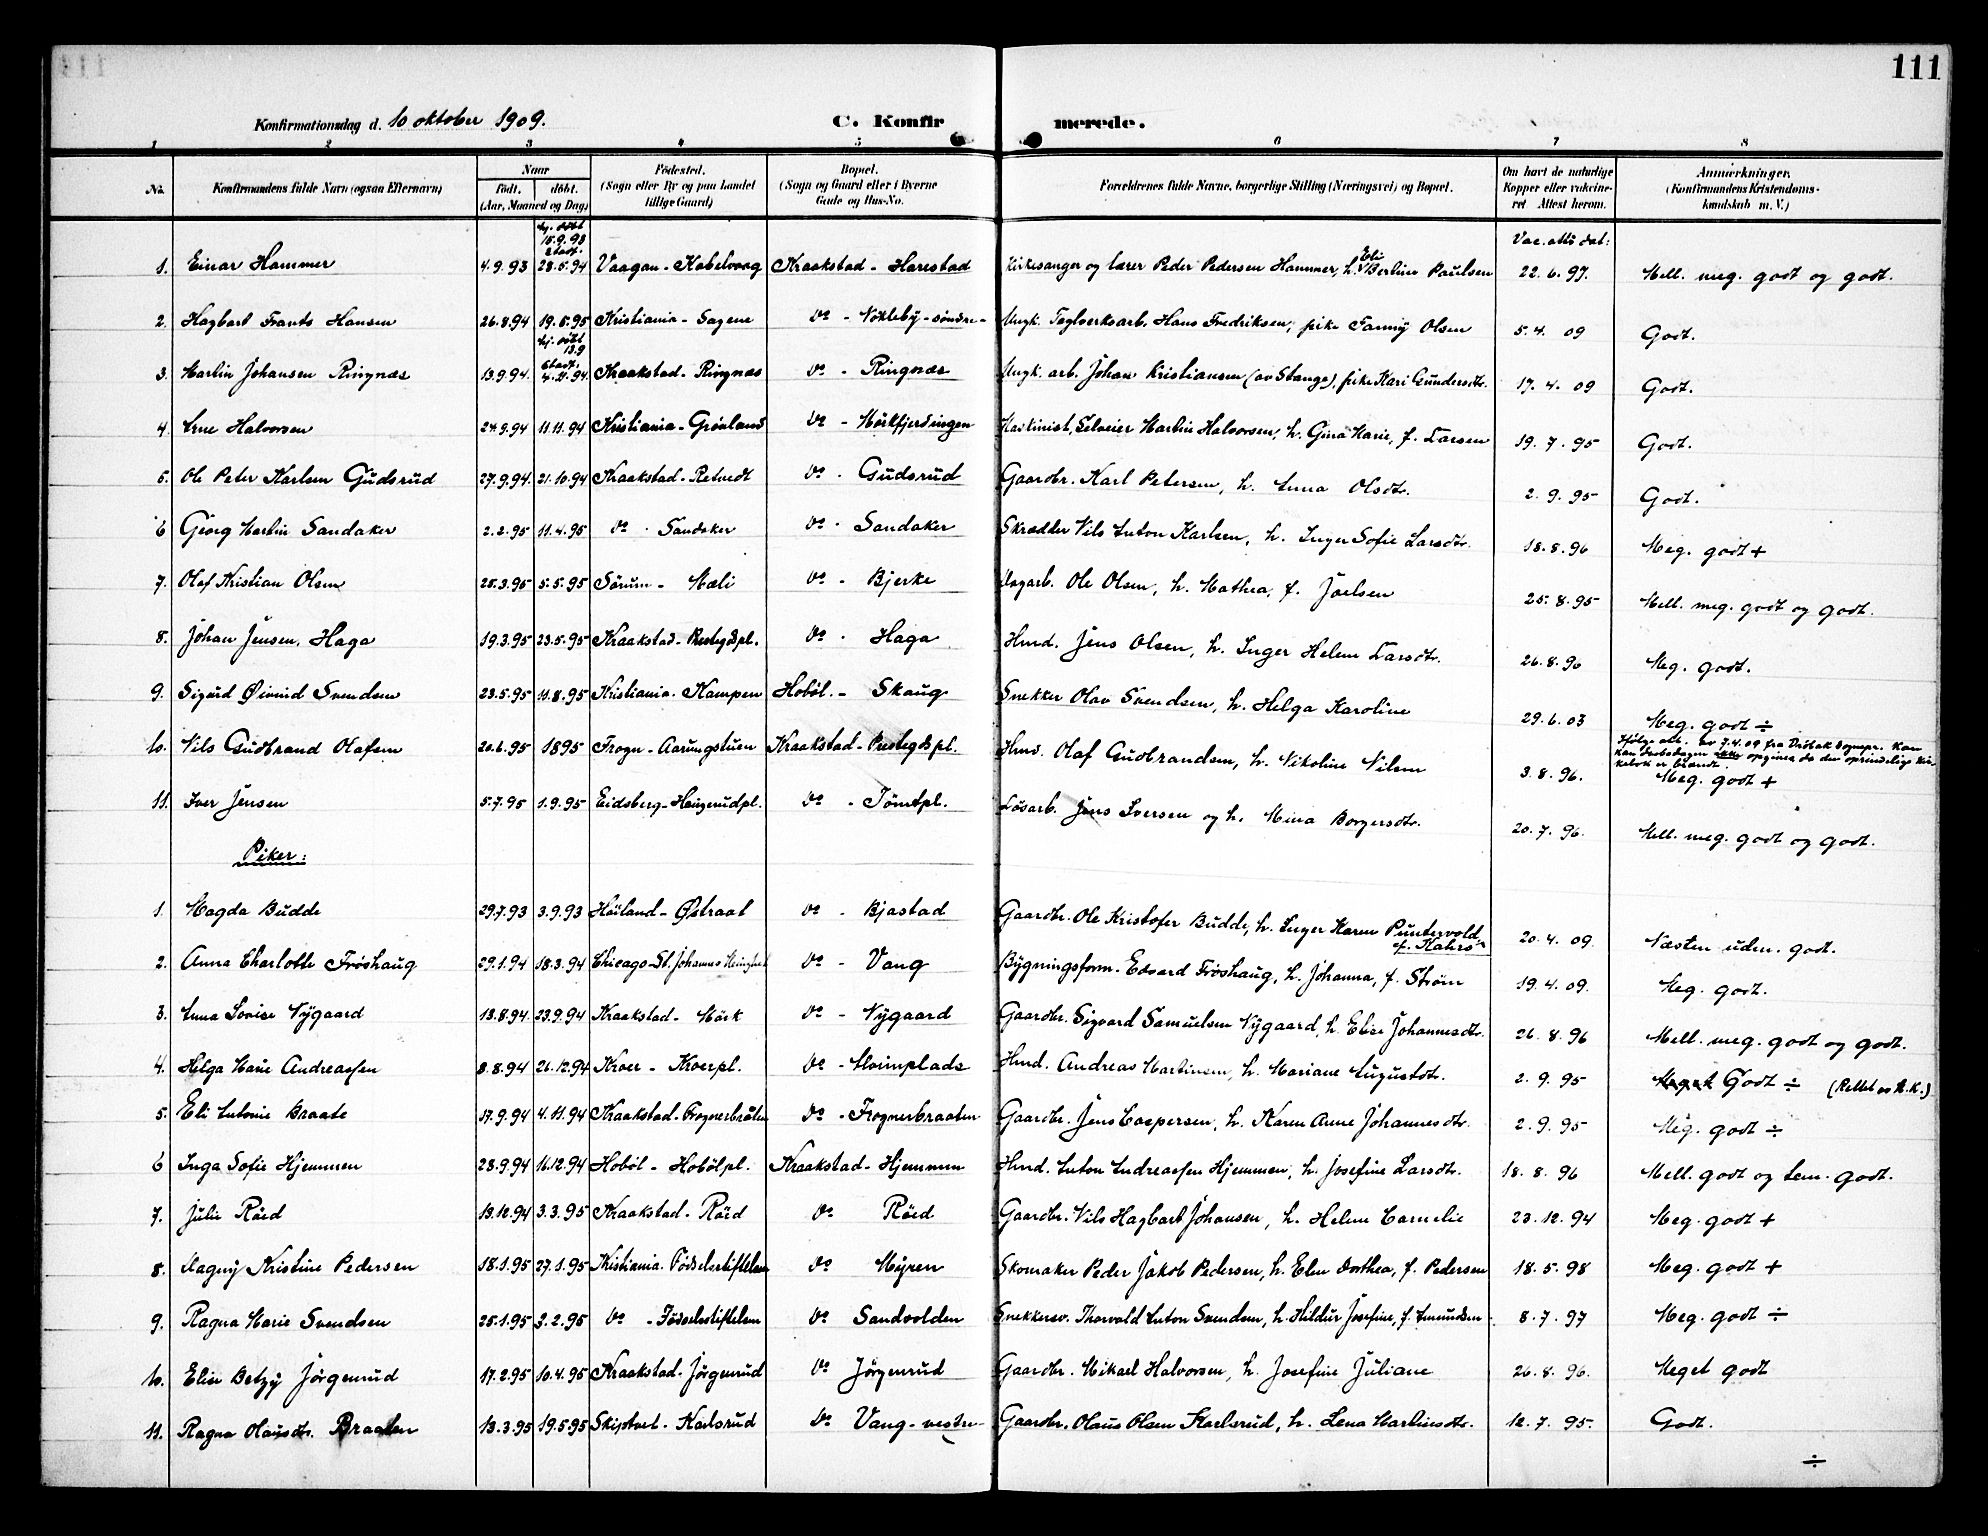 111
Konfirmationsdag d. 10 oktober 1909. C. Konfirmerede.
1 2 3 4 5 6 7 8
No. Konfirmandens fulde Navn (ogsaa Efternavn) Naar født. døbt. (Aar, Maaned og Dag) Fødested. (Sogn eller By og paa Landet tillige Gaard) Bopæl. (Sogn og Gaard eller i Byerne Gade og Hus-No. Forældrenes fulde Navne, borgerlige Stilling (Næringsvei) og Bopæl. Om havt de naturlige Kopper eller vakcineret Attest herom. Anmerkninger. (Konfirmandens Kristendomskundskab m. V.)
hj. døbt 15.9.93 Stadf. Vac. atts dat:
1. Einar Hammer 4.9.93 28.5.94 Vaagan - Kabelvaag Kraakstad - Harestad Kirkesanger og lærer Peder Pedersen Hammer, h. Eli Berline Paulsen 22.6.97. Mell. meg. godt og godt.
2. Hagbart Frants Hansen 26.8.94 19.5.95 Kristiania - Sagene do - Nökleby - söndre - Ungk. Teglverksarb. Hans Fredriksen, pike Fanny Olsen 5.4.09 Godt.
hj. döbt 13.9 Stadf.
3. Martin Johansen Ringnæs 13.9.94. 4.11.94 Kraakstad - Ringnæs do - Ringnæs Ungk. arb. Johan Kristiansen (av Stange), pike Kari Gundersdtr. 17.4.09 Godt.
4. Arne Halvorsen 24.9.94 11.11.94 Kristiania - Grönland do - Mörkfjerdingen Maskinist, Selveier Martin Halvorsen, h. Gina Marie, f. Larsen 19.7.95 Godt.
5. Ole Peter Karlsen Gudsrud 27.9.94. 21.10.94 Kraakstad - Retvedt do - Gudsrud Gaardbr. Karl Petersen, h. Anna Olsdtr. 2.9.95 Godt.
6 Georg Martin Sandaker 2.2.95 11.4.95 do - Sandaker do - Sandaker Skrædder Nils Anton Karlsen, h. Inger Sofie Larsdtr. 18.8.96 Meg. godt +
7. Olaf Kristian Olsen 25.3.95 5.5.95 Sörum - Mæli do - Bjerke Dagarb. Ole Olsen, h. Mathea, f. Joelsen 25.8.95 Mell. meg. godt og godt.
8. Johan Jensen, Haga 19.3.95 23.5.95 Kraakstad - Prestegdspl. do - Haga Hmd. Jens Olsen, h. Inger Helene Larsdtr. 26.8.96 Meg. godt.
9. Sigurd Øivind Svendsen 23.5.95 11.8.95 Kristiania - Kampen Hoböl. - Skaug Snekker Olav Svendsen, h. Helga Karoline 29.6.03 Meg. godt ÷
10. Nils Gudbrand Olafsen 20.6.95 1895 Frogn - Aarungstuen Kraakstad - Prestegdspl. Hmd. Olaf Gudbrandsen, h. Nikoline Nilsen 3.8.96. Ifölge att. av 7.4.09 fra Dröbak sognepr. kan daabsdagen ikke opgives da den oprindelige kirkebok er brændt. Meg. godt +
11. Iver Jensen 5.7.95 1.9.95 Eidsberg - Heigerudpl. do - Tomtpl. Lösarb. Jens Iversen og h. Mina Borgersdtr. 20.7.96. Mell. meg. godt og godt.
Piker:
1. Magda Budde 29.7.93 3.9.93 Höiland - Østraat do - Bjastad Gaardbr. Ole Kristofer Budde, h. Inger Karen Puntervold f. Kahrs 20.4.09. Næsten uden. godt.
2. Anna Charlotte Fröshaug 29.1.94 18.3.94 Chicago - St. Johannes do - Vang Bygningsform. Edvard Fröshaug, h. Johanna, f. Ström 19.4.09. Meg. godt.
3. Anna Lovise Nygaard 13.8.94. 23.9.94 Kraakstad - Mörk do - Nygaard Gaardbr. Sigvard Samuelsen Nygaard, h. Elise Johannesdtr. 26.8.96 Mell. meg. godt og godt.
4. Helga Marie Andreassen 8.8.94 26.12.94 Kroer - Kroerpl. do - Hvinplads Hmd. Andreas Martinsen, h. Mariane Augustdtr. 2.9.95 Meget Godt ÷ (Rettet av N.K.)
5. Eli Antonie Braate 17.9.94 4.11.94 Kraakstad - Frognerbråten do - Frognerbraaten Gaardbr. Jens Caspersen, h. Karen Anne Johannesdtr. 2.9.95 Meg. godt ÷
6 Inga Sofie Hjemmen 28.9.94 16.12.94 Hoböl - Hobölpl. Kraakstad - Hjemmen Hmd. Anton Andreassen Hjemmen, h. Josefine Larsdtr. 18.8.96 Mell. godt og tem. godt.
7. Julie Röed 13.12.94 3.3.95 Kraakstad - Röed do Röed Gaardbr. Nils Hagbart Johansen, h. Helene Cornelie 23.12.94 Meg. godt +
8. Dagny Kristine Pedersen 18.1.95 27.1.95 Kristiania - Födselsstiftelsen do Myren Skomaker Peder Jakob Pedersen, h. Elen Dorthea, f. Pedersen 18.5.98 Meg. godt +
9. Ragna Marie Svendsen 25.1.95 3.2.95 do - Födselsstiftelsen do Sandvolden Snekkersv. Thorvald Anton Svendsen, h. Hildur Josefine, f. Amundsen 8.7.97 Meg. godt ÷
10. Elise Betzy Jörgenrud 17.2.95 10.4.95 Kraakstad - Jörgenrud do Jörgenrud Gaardbr. Mikael Halvorsen, h. Josefine Juliane 26.8.96. Meget godt
11. Ragna Olausdtr. Braaten 13.3.95 19.5.95 Skiptvet - Karlsrud do Vang - vestre - Gaardbr. Olaus Olsen Karlsrud, h. Lena Martinsdtr. 12.7.95. Godt.
÷